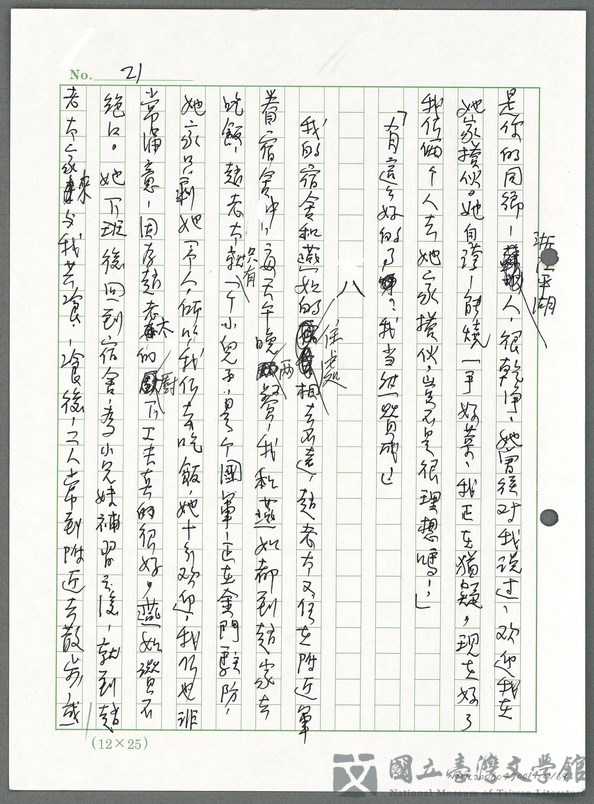 No. 21
是你的同鄉—浙江平湖人,很乾淨,她曾經對我說過,歡迎我在
她家搭伙。她自誇—能燒一手好菜,我正在猶疑,現在好了
我倆個人去她家搭伙,豈不是很理想嗎!」
「有這麼好的事?我當然贊成!」
八
我的宿舍和燕如的住處相去不遠,趙老太又住在附近軍
眷宿舍中,每天午晚兩餐,我和燕如都到趙家去
吃飯,趙老太只有一個小兒子,是個國軍,正在金門駐防,
她家只剩她一个人,所以我们去吃飯,她十分欢迎,我们也非
常滿意,因为趙老太的廚下工夫真的很好,燕如讚不
絕口。她下班後回到宿舍,為小兄妹補習之後,就到趙
老太家來与我共餐,餐後,二人常到附近去散步,或
(12×25)
國立臺灣文學館
National Museum of Taiwan Literature